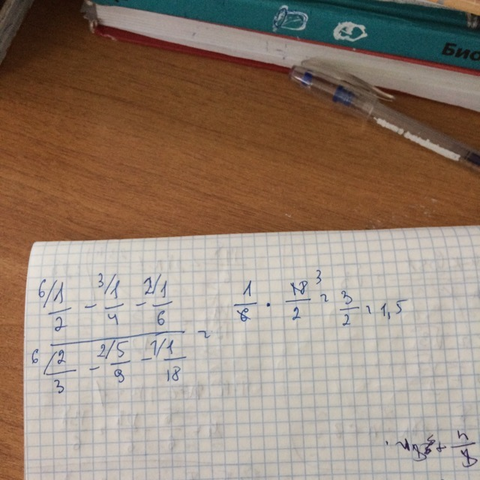 Био
6/1/2 - 3/1/4 - 2/1/6
6/2/3 - 2/5/9 - 1/1/18 = 1/6 · 18³/2 = 3/2 = 1,5